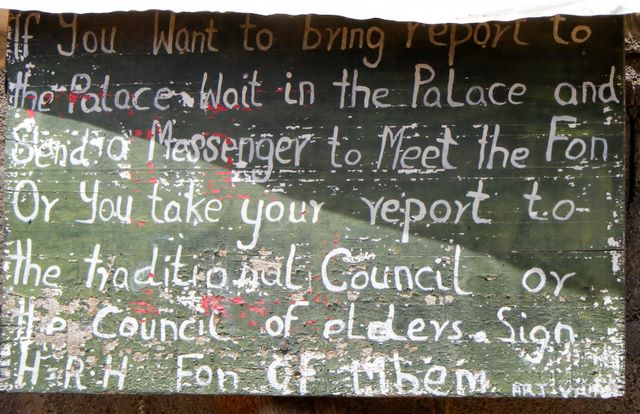 If You Want to bring report to
the Palace Wait in the Palace and
Send a Messenger to Meet the Fon
Or You take your report to
the traditional Council or
the Council of eLders. Sign
H.R.H Fon OF Mbem
ART